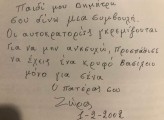 Παιδί μου Δημήτρα
σου δίνω μια συμβουλή.
Οι αυτοκρατορίες γκρεμίζονται
Για να μην ανησυχή, προσπάθησε
να έχεις ένα κρυφό Βασίλειο
μόνο για σένα
Ο πατέρας σου
1-2-2008